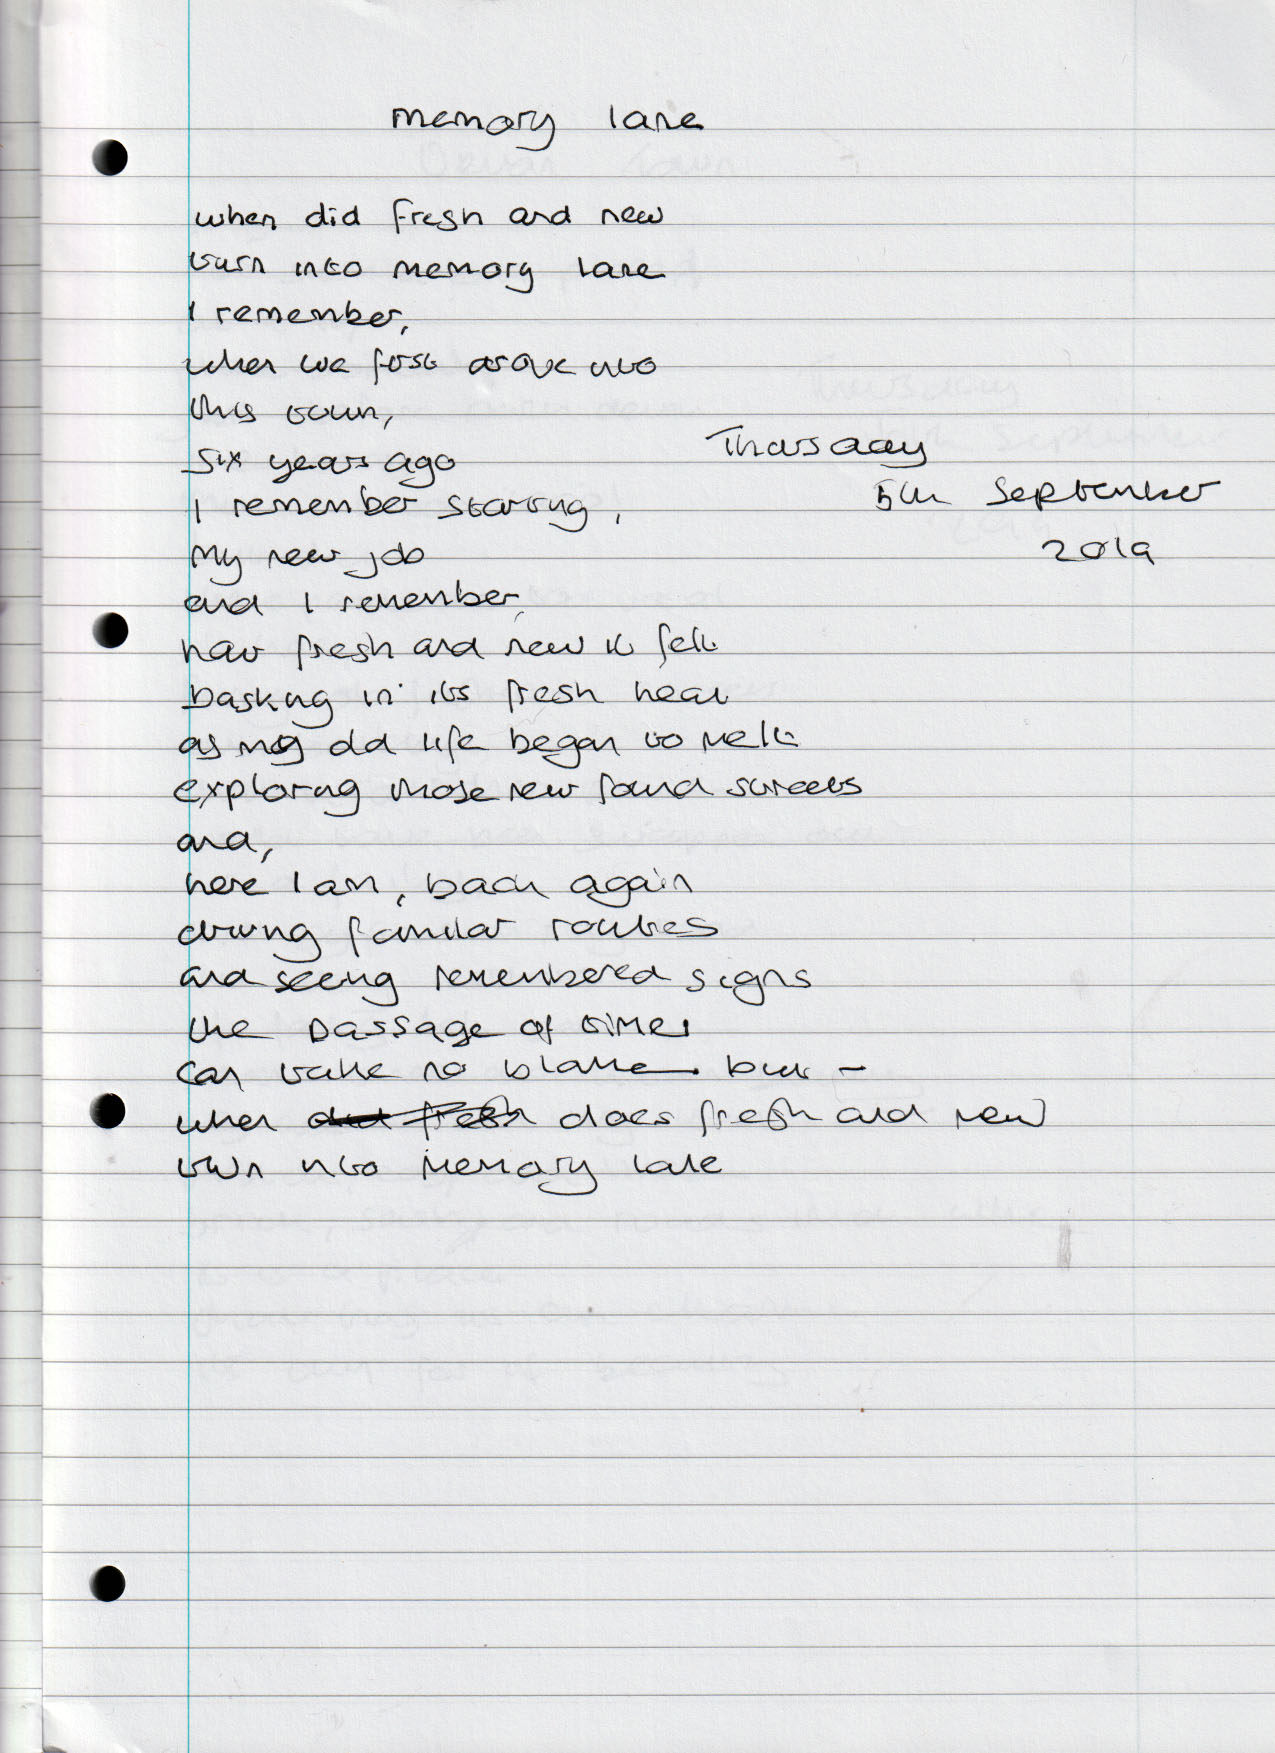 memory lane
when did fresh and new
turn into memory lane
I remember,
when we first drove into
this town,
six years ago
Thursday
I remember starting,
5th September
my new job
2019
and I remember,
how fresh and new it felt
basking in its fresh heat
as my old life began to melt
exploring those new found streets
and,
here I am, back again
driving familiar routes
and seeing remembered signs
the passage of time
can take no blame. but -
when did fresh does fresh and new
turn into memory lane